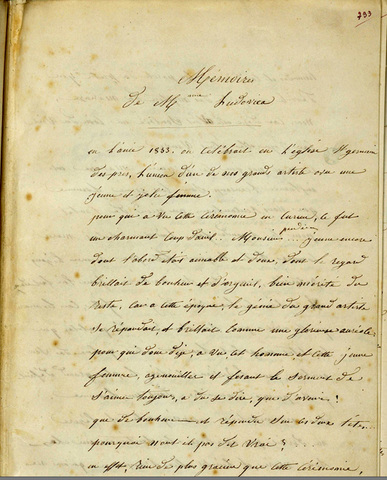 733
Mémoires
de M me Ludovica
en l'anée 1833. on célébrait en l'église St germain
des pres, l'union d'un de nos grands artiste a une
jeune et jolie femme.
pour qui a vu cette cérémonie en curieux, ce fut
un charmant coup d'œil.. Monsieur ... jeune encore
dont l'abord était aimable et doux, dont le regard
brillait de bonheur et d'orgueil, bien mérité du
reste, car a cette époque, le génie du grand artiste
se répandait, et brillait comme une glorieuse auréole
pour qui donc dejа, a vu cet homme et cette jeune
femme, agenouiller et fesant le serment de
s'aimer toujours, a du se dire, que d'avenir!
que de bonheur et répendre sur ces deux têtes...
pourquoi n'ont il pas dit vrai?
en effet, rien de plus gracieux que cette cérémonie,